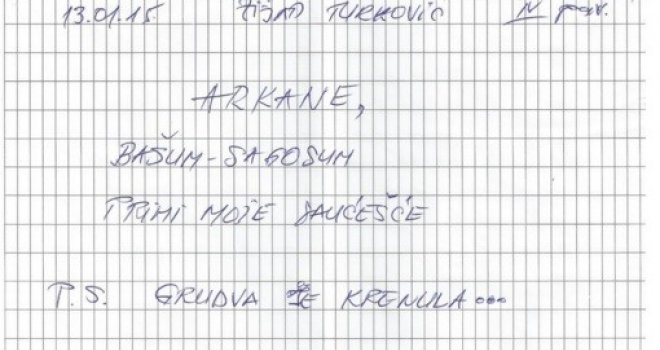 13.01.15. ZIJAD TURKOVIĆ IV pav.
ARKANE,
BAŠUM-SAGOSUM
PRIMI MOJE SAUĆEŠĆE
P.S. GRUDVA JE KRENULA...